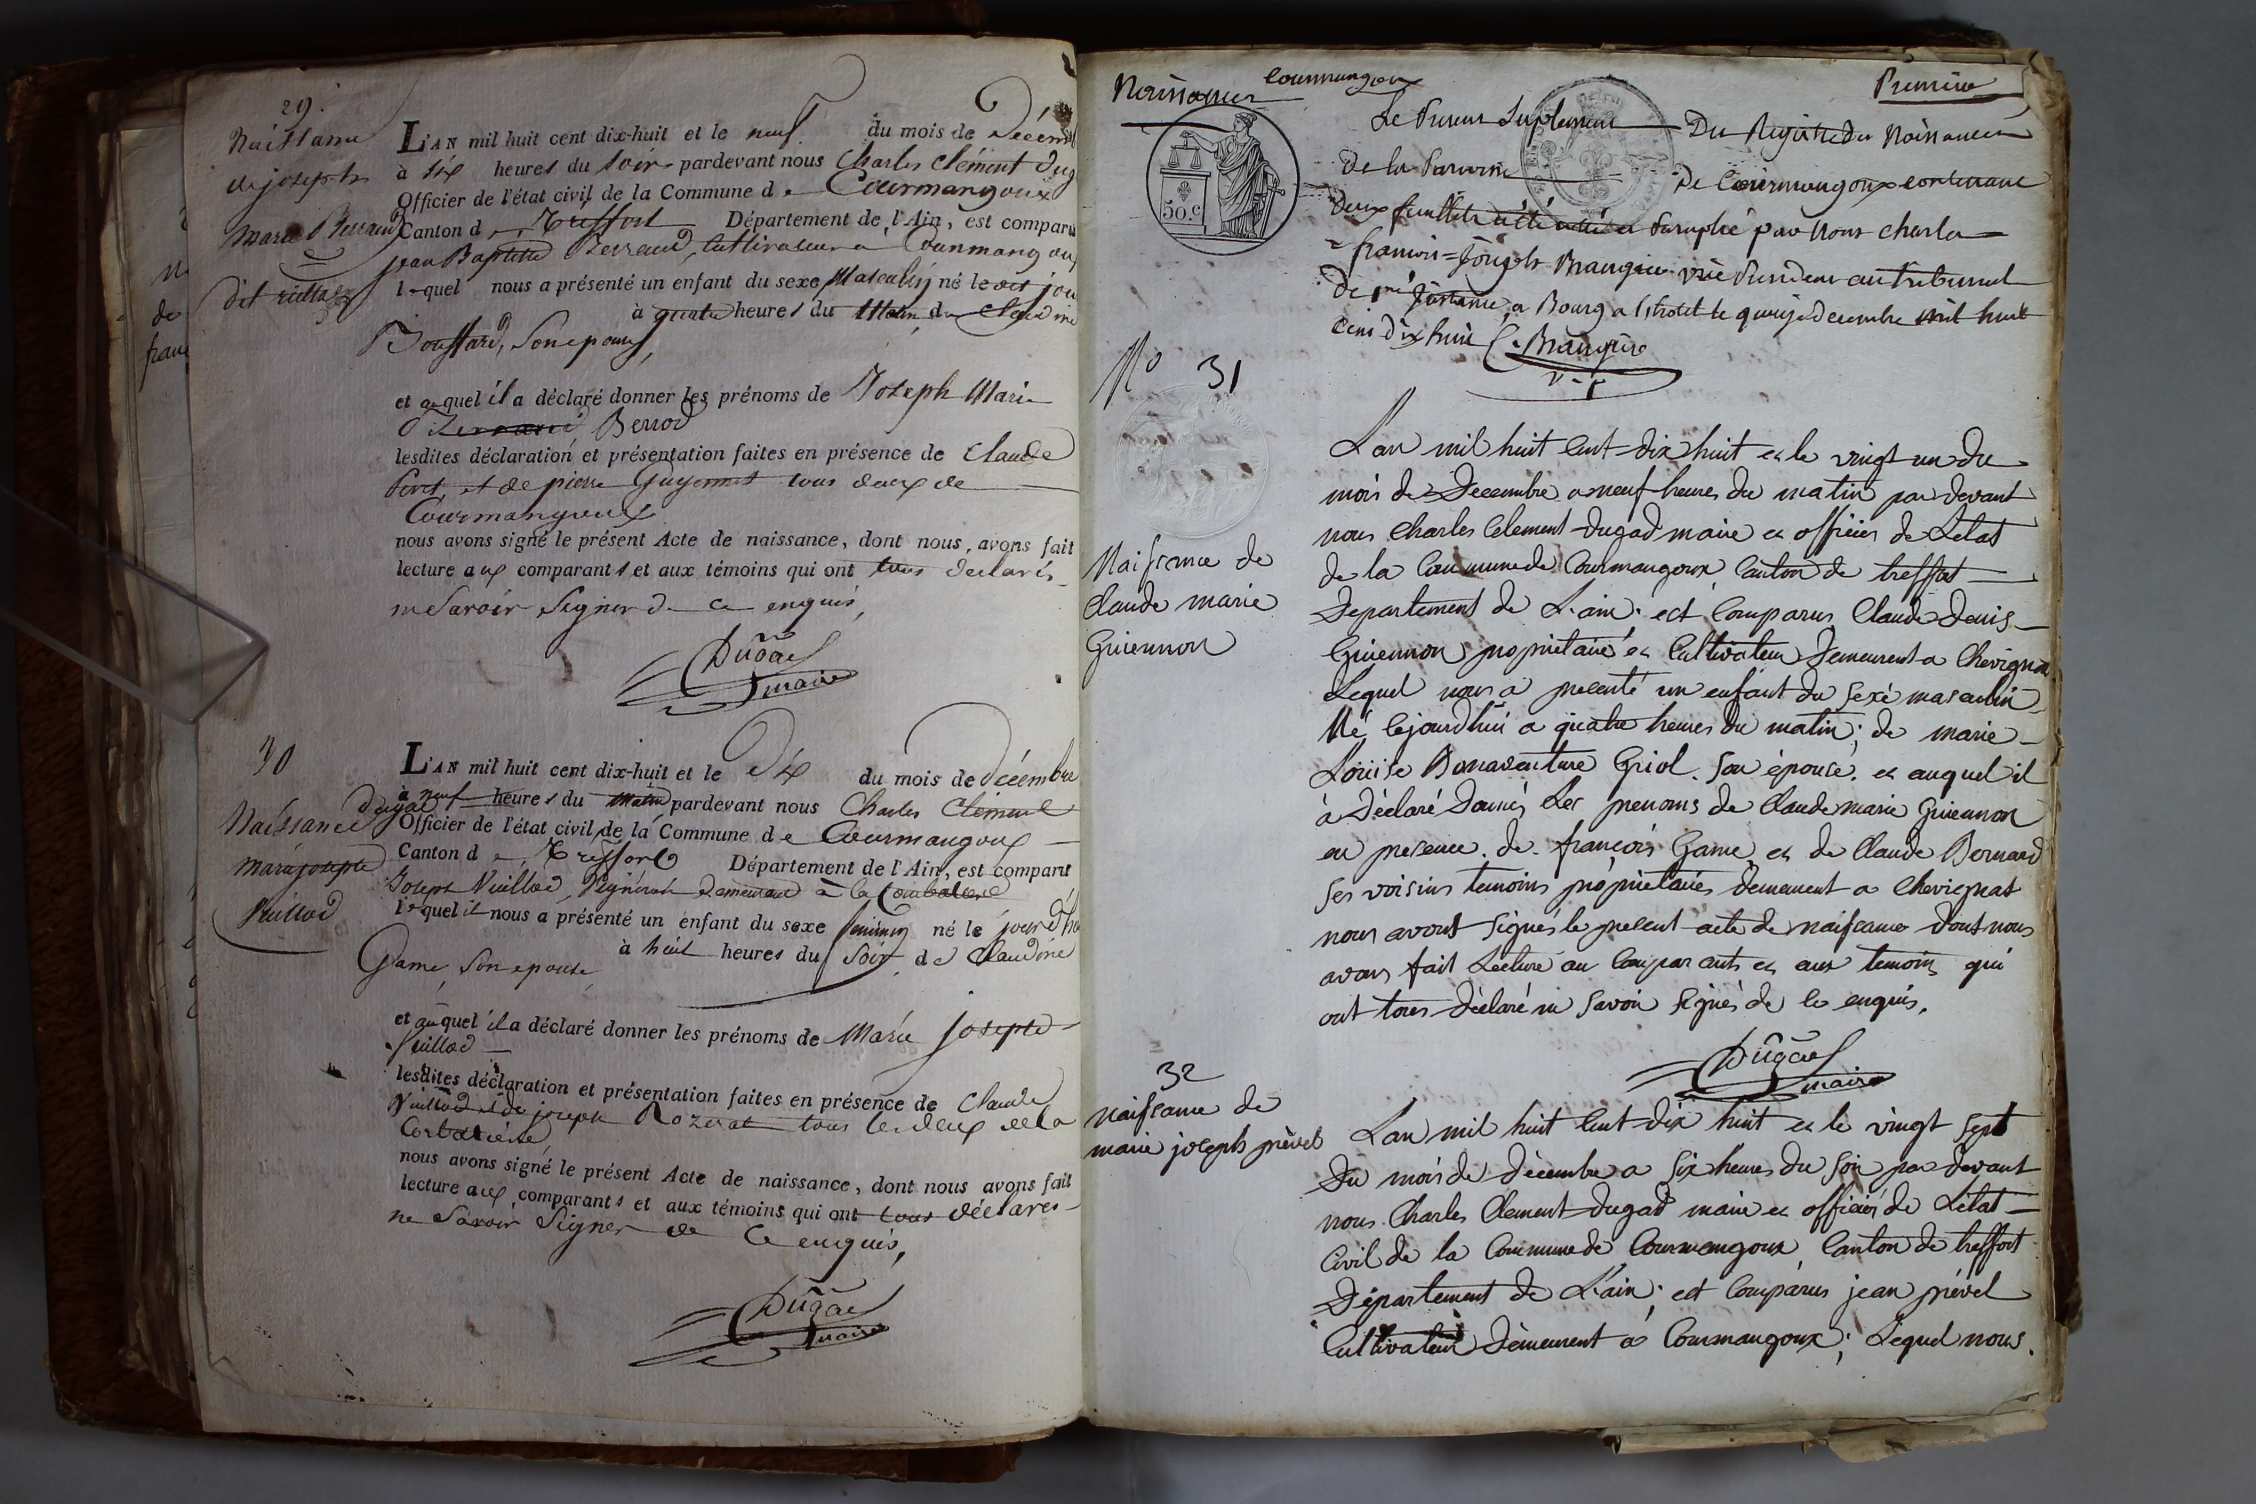 29.
Naissance
de joseph
marie Perraud
dit
L'AN mil huit cent dix-huit et le neuf du mois de Décem
à six heures du soir pardevant nous Charles Clément Dug
Officier de l'état civil de la Commune de Courmangoux
Canton de Treffort Département de l'Ain, est comparu
jean Baptiste Perraud, Cultivateur a Courmangoux
lequel nous a présenté un enfant du sexe Masculin né le dit jou
à quatre heures du Matin de Claudine
Bouffard, Son epouse,
et auquel il a déclaré donner les prénoms de Joseph Marie
Perrod
lesdites déclaration et présentation faites en présence de Claude
Piret et de pierre Guyonnet tous deux de
Courmangoux
nous avons signé le présent Acte de naissance, dont nous, avons fait
lecture aux comparants et aux témoins qui ont tous déclarés
ne Savoir Signer de ce enquis,
Dugad
maire
30
Naissance
marie josepte
Vuillod
L'AN mil huit cent dix-huit et le Dix du mois de décembre
à neuf heures du matin pardevant nous Charles Clément
dugad
Officier de l'état civil de la Commune de Courmangoux
Canton de Treffort Département de l'Ain, est comparu
Joseph Vuillod, Vigneron demeurant à la Combatière
lequel il nous a présenté un enfant du sexe feminin né le jour d'hi
à huit heures du Soir de Claudine
Game, Son epouse,
et auquel il a déclaré donner les prénoms de Marie Josepte
Vuillod
lesdites déclaration et présentation faites en présence de Claude
Vuillod et de joseph Rozerat tous les deux de la
Corbatière
nous avons signé le présent Acte de naissance, dont nous avons fait
lecture aux comparants et aux témoins qui ont tous déclarés
ne Savoir Signer de Ce enquis,
Dugad
maire
Naissances Courmangoux Premiere
50.c
Le Present Suplement Du Registre des Naissances
De la Paroisse De Courmangoux contenant
Deux feuillets a été coté et Paraphé par Nous Charles
françois=Joseph Brangier vice President au tribunal
De 1ere Instance, a Bourg a l'hotel le quinze decembre mil huit
Cent Dix huit C. Brangier
V-P
No 31
Naissance de
Claude marie
Guiennon
L'an mil huit Cent Dix huit et le vingt un du
mois de Decembre a neuf heures du matin par devant
nous Charles Clement Dugad maire et officier de L'etat
de la Commune de Courmangoux Canton de treffort
Departement de L'ain; est Comparus Claude Denis
Guiennon propriétaire et Cultivateur Demeurent a Chevignat
Lequel nous a presenté un enfant du sexe masculin
Né Cejourd'hui a quatre heures du matin; de marie
Louise Bonaventure Griol. Son épouse. et auquel il
à Déclaré Donnés Les prenoms de Claude marie Guiennon
en presence. de. françois Game, et de Claude Bernard
ses voisins temoins propriétaires demeurent a Chevignat
nous avont signés le present acte de naissance dont nous
avons fait Lecture au Comparants et aux temoins qui
ont tous Déclaré ne savoir signés de Ce enquis,
Dugad
maire
32
naissance de
marie joseph prèvel
L'an mil huit Cent Dix huit et le vingt Sept
Du mois de Décembre a Six heures du Soir par devant
nous Charles Clement Dugad maire et officier de L'etat
Civil de la Commune de Courmangoux Canton de treffort
Département de L'ain; est Comparus jean prével
Cultivateur Demeurent a Courmangoux; Lequel nous.